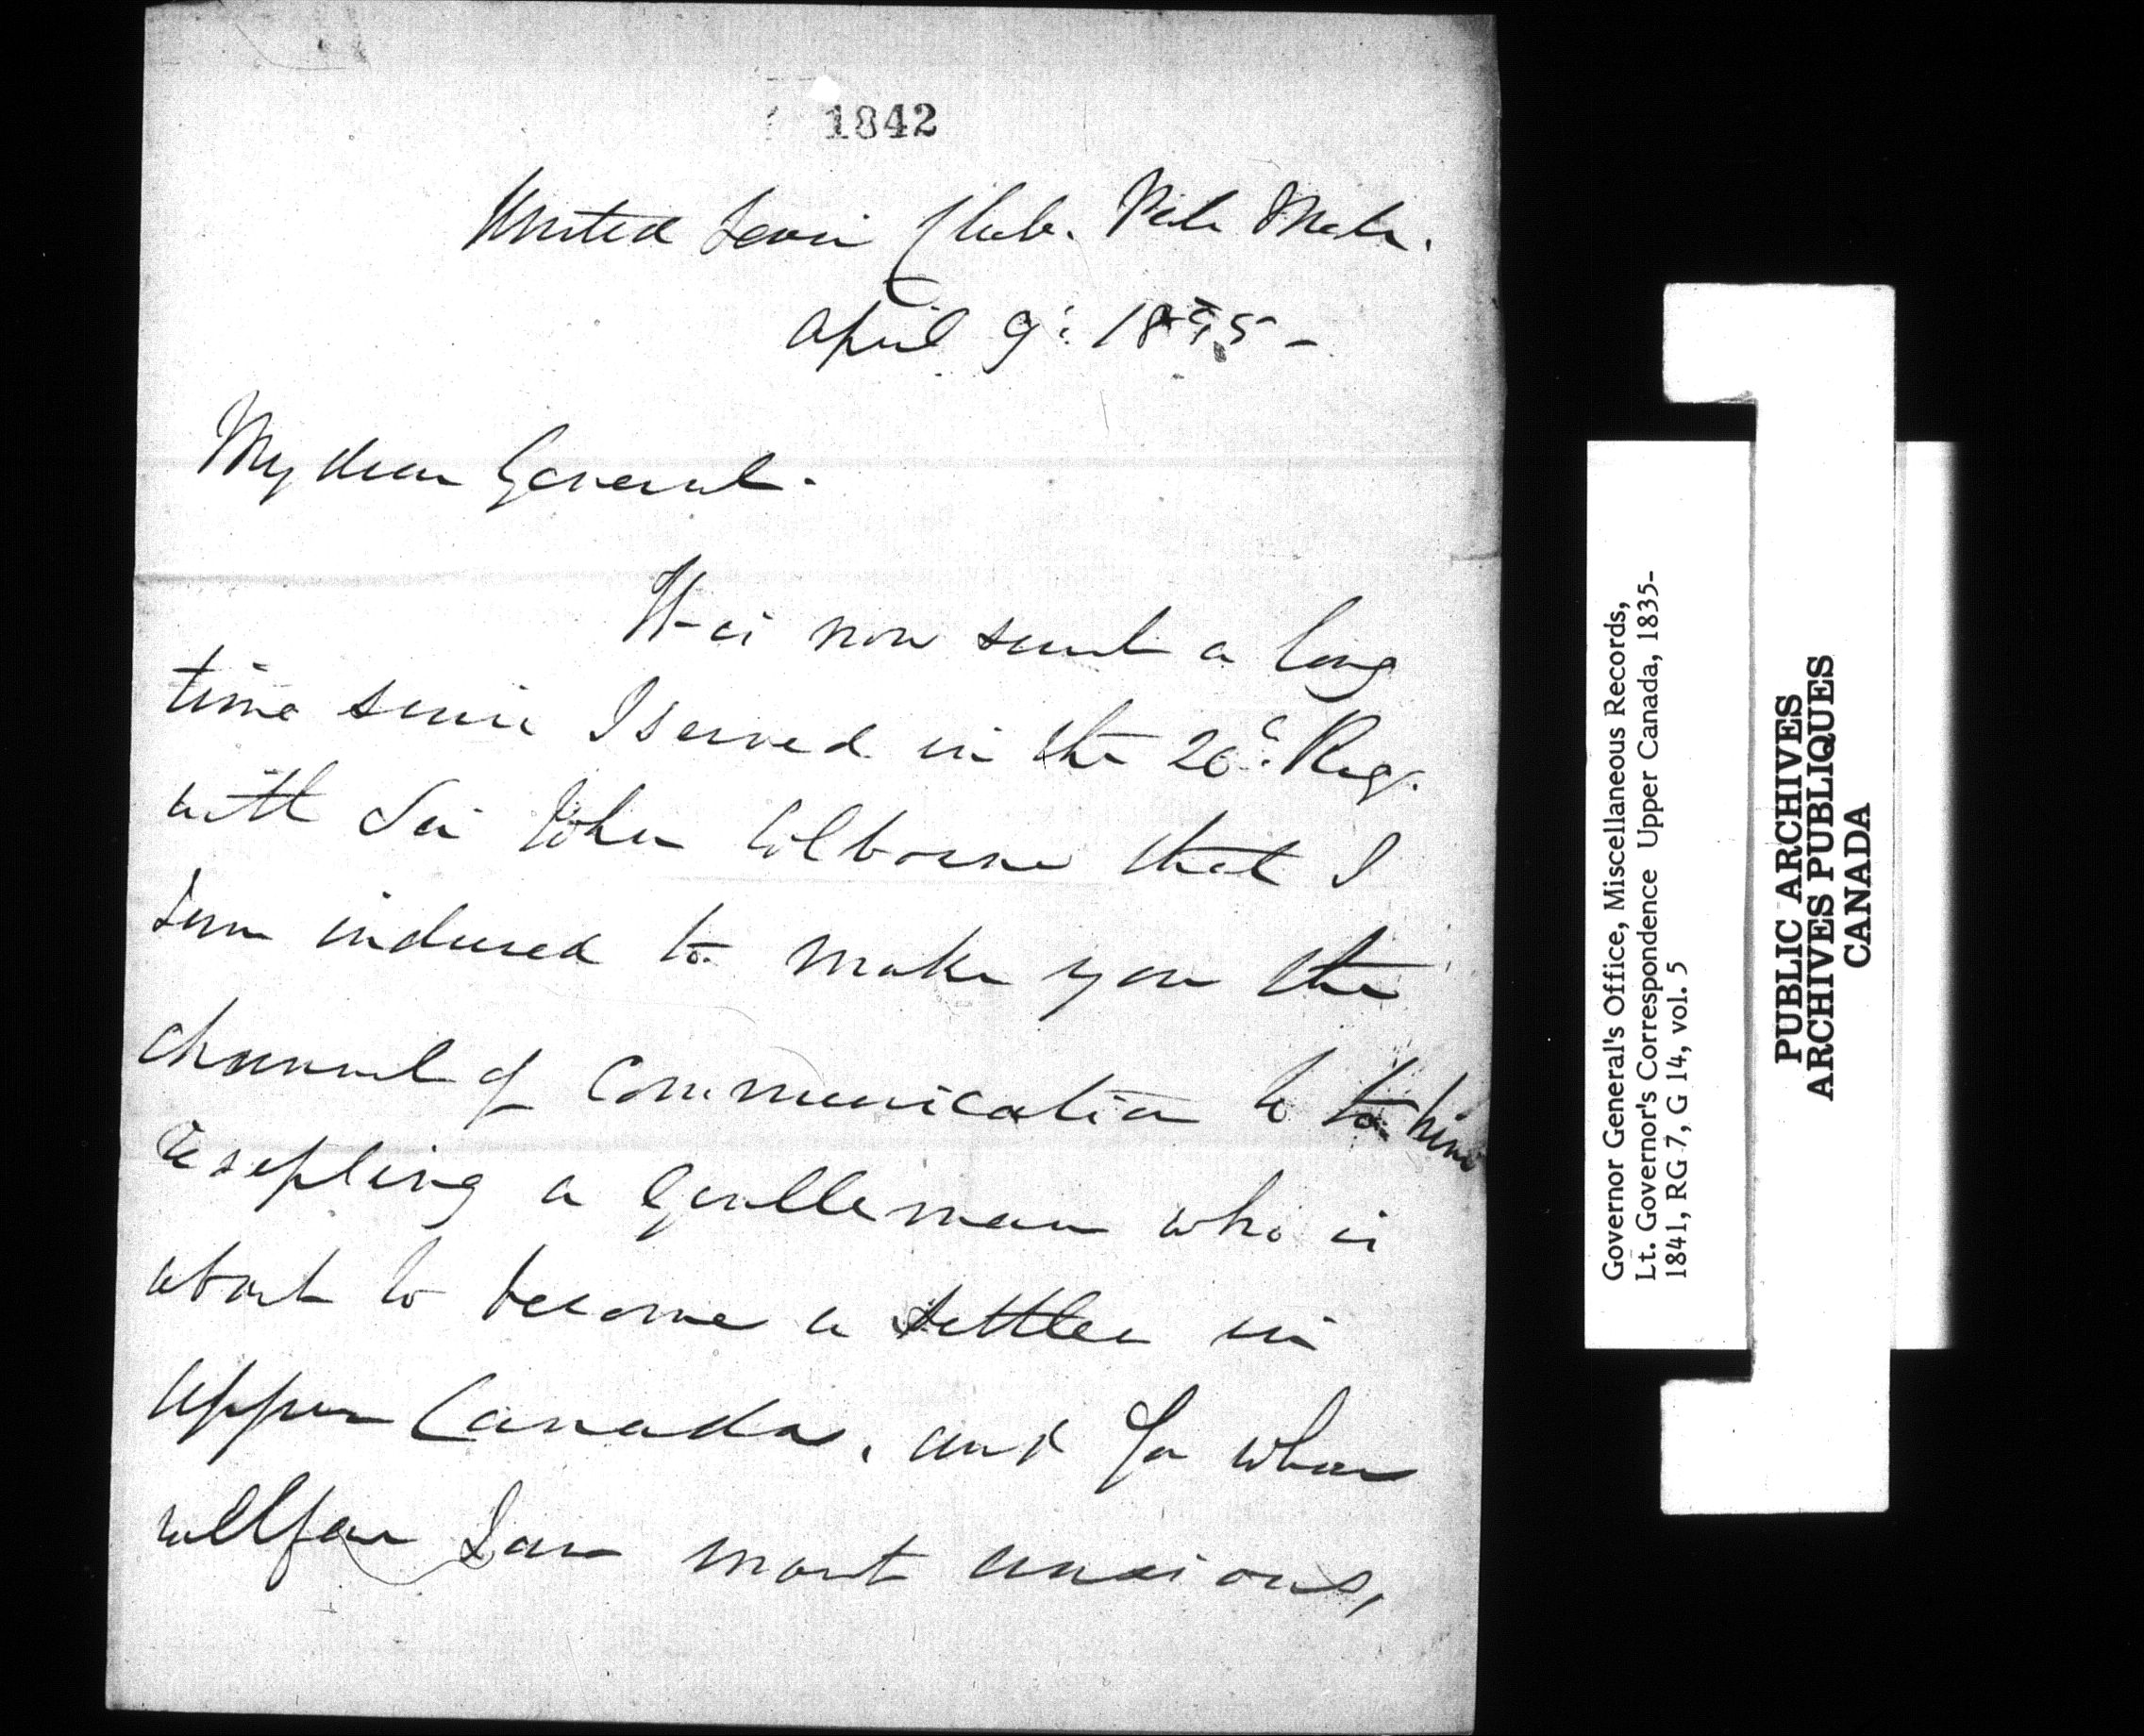 1842
United Servi Club. Pale Male.
April 9: 1835 -
My dear General.
It is now such a long
time since I served in the 20th. Reg.
with Sir John Colborne that I
am induced to make you the
channel of communication to to him
respecting a Gentleman who is
about to become a settler in
Upper Canada, and for whose
wellfare I am most anxious,
Governor General's Office, Miscellaneous Records,
Lt. Governor's Correspondence Upper Canada, 1835-
1841, RG 7, G 14, vol. 5
PUBLIC ARCHIVES
ARCHIVES PUBLIQUES
CANADA